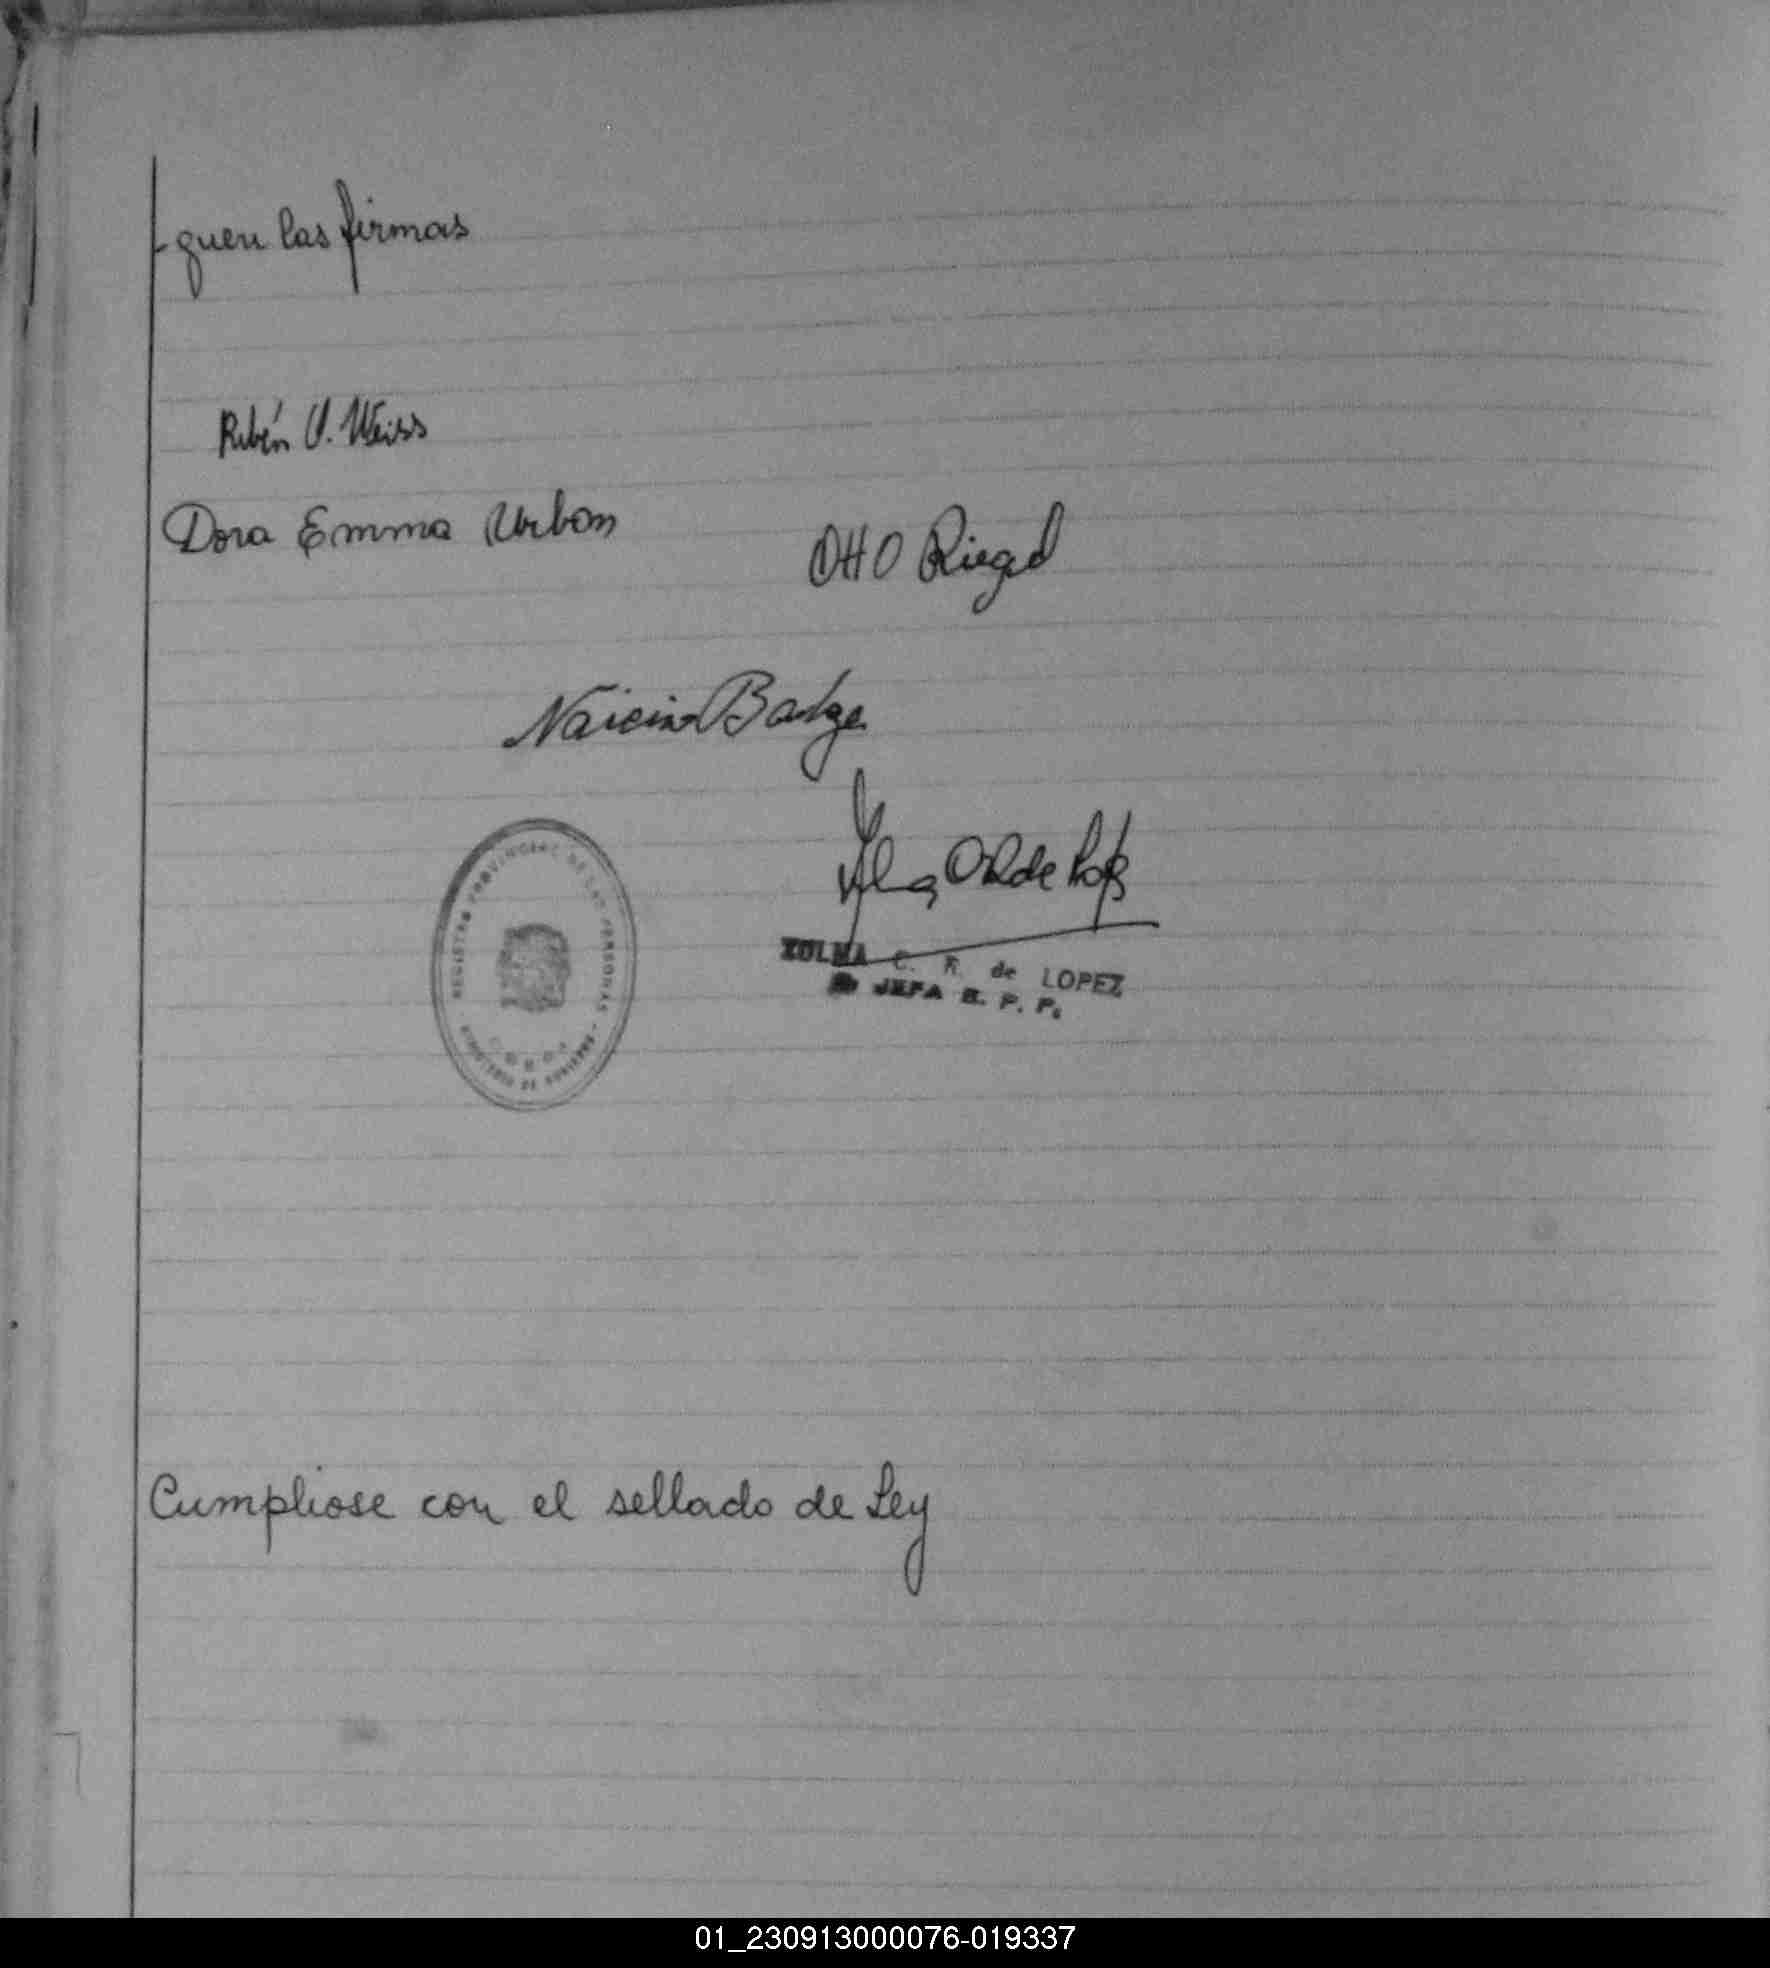 guen las firmas
Rubén V. Weiss
Dora Emma Urban
Otto Riegel
REGISTRO PROVINCIAL DE LAS PERSONAS
MINISTERIO DE GOBIERNO
ZULMA C. R. de LOPEZ
JEFA R. P. P.
Cumpliose con el sellado de Ley
01_230913000076-019337